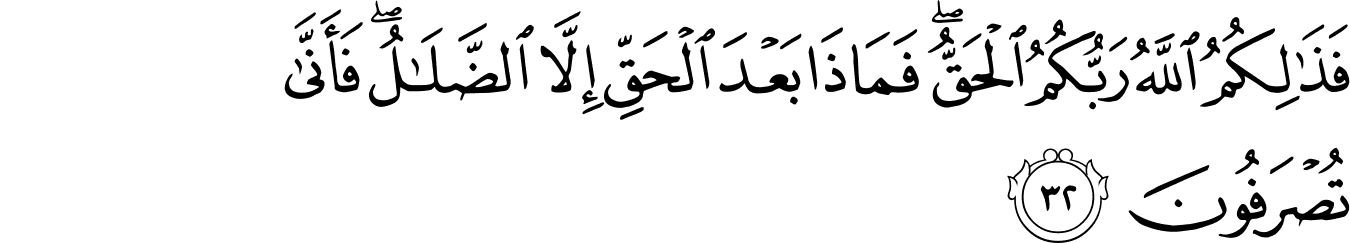 فَذَٰلِكُمُ ٱللَّهُ رَبُّكُمُ ٱلْحَقُّ ۖ فَمَاذَا بَعْدَ ٱلْحَقِّ إِلَّا ٱلضَّلَـٰلُ ۖ فَأَنَّىٰ
تُصْرَفُونَ ٣٢